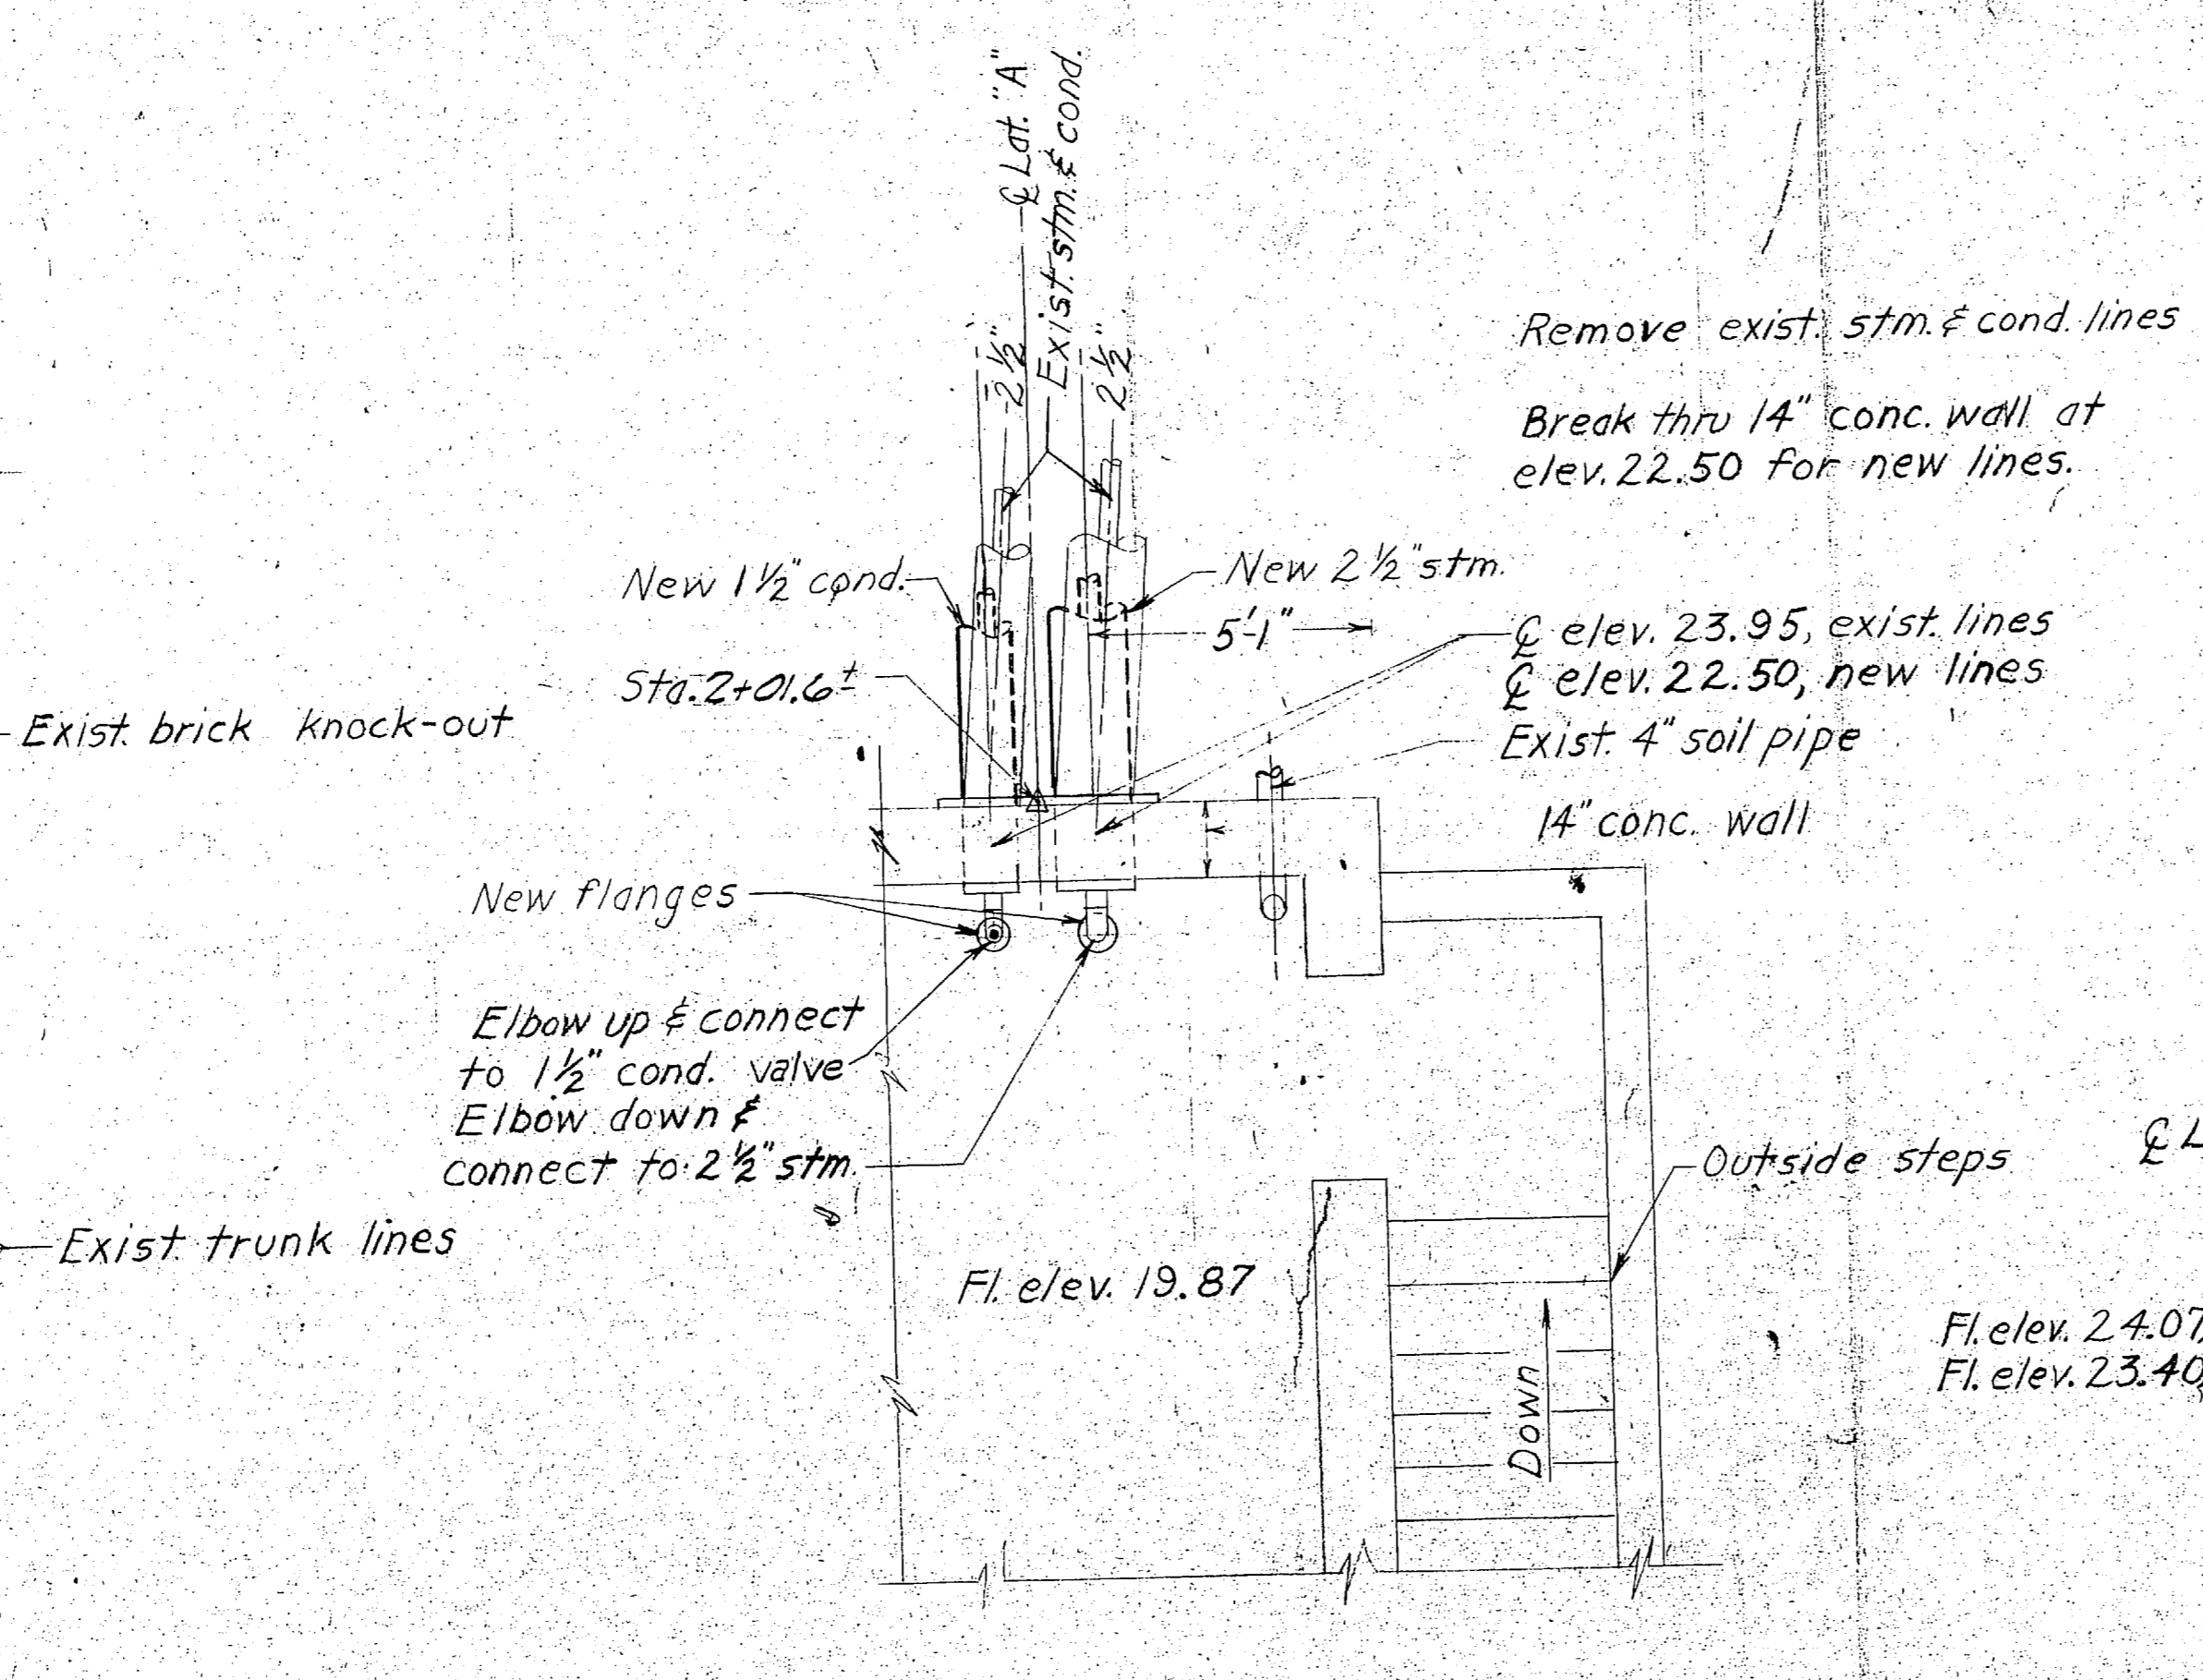 ℄ Lat. "A"
Exist. stm. & cond.
2½"
2½"
Remove exist. stm. & cond. lines
Break thru 14" conc. wall at
elev. 22.50 for new lines.
New 1½" cond.
New 2½" stm.
5'-1"
℄ elev. 23.95, exist. lines
℄ elev. 22.50, new lines
Sta. 2+01.6±
Exist. brick knock-out
Exist. 4" soil pipe
14" conc. wall
New flanges
Elbow up & connect
to 1½" cond. valve
Elbow down &
connect to 2½" stm.
Outside steps
℄ L
Exist. trunk lines
Fl. elev. 19.87
Down
Fl. elev. 24.07,
Fl. elev. 23.40,